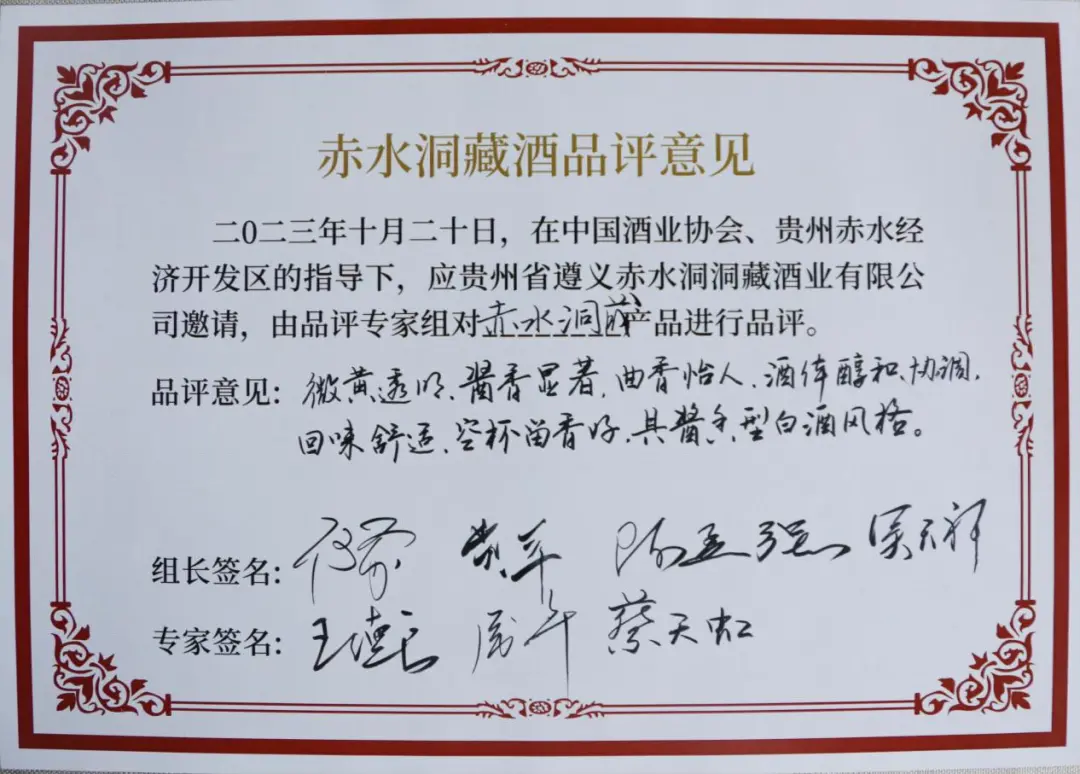 赤水洞藏酒品评意见
二〇二三年十月二十日，在中国酒业协会、贵州赤水经
济开发区的指导下，应贵州省遵义赤水洞洞藏酒业有限公
司邀请，由品评专家组对赤水洞藏产品进行品评。
品评意见：微黄透明、酱香显著、曲香怡人、酒体醇和、协调、
回味舒适、空杯留香好、具酱香型白酒风格。
组长签名：
专家签名：蔡天虹